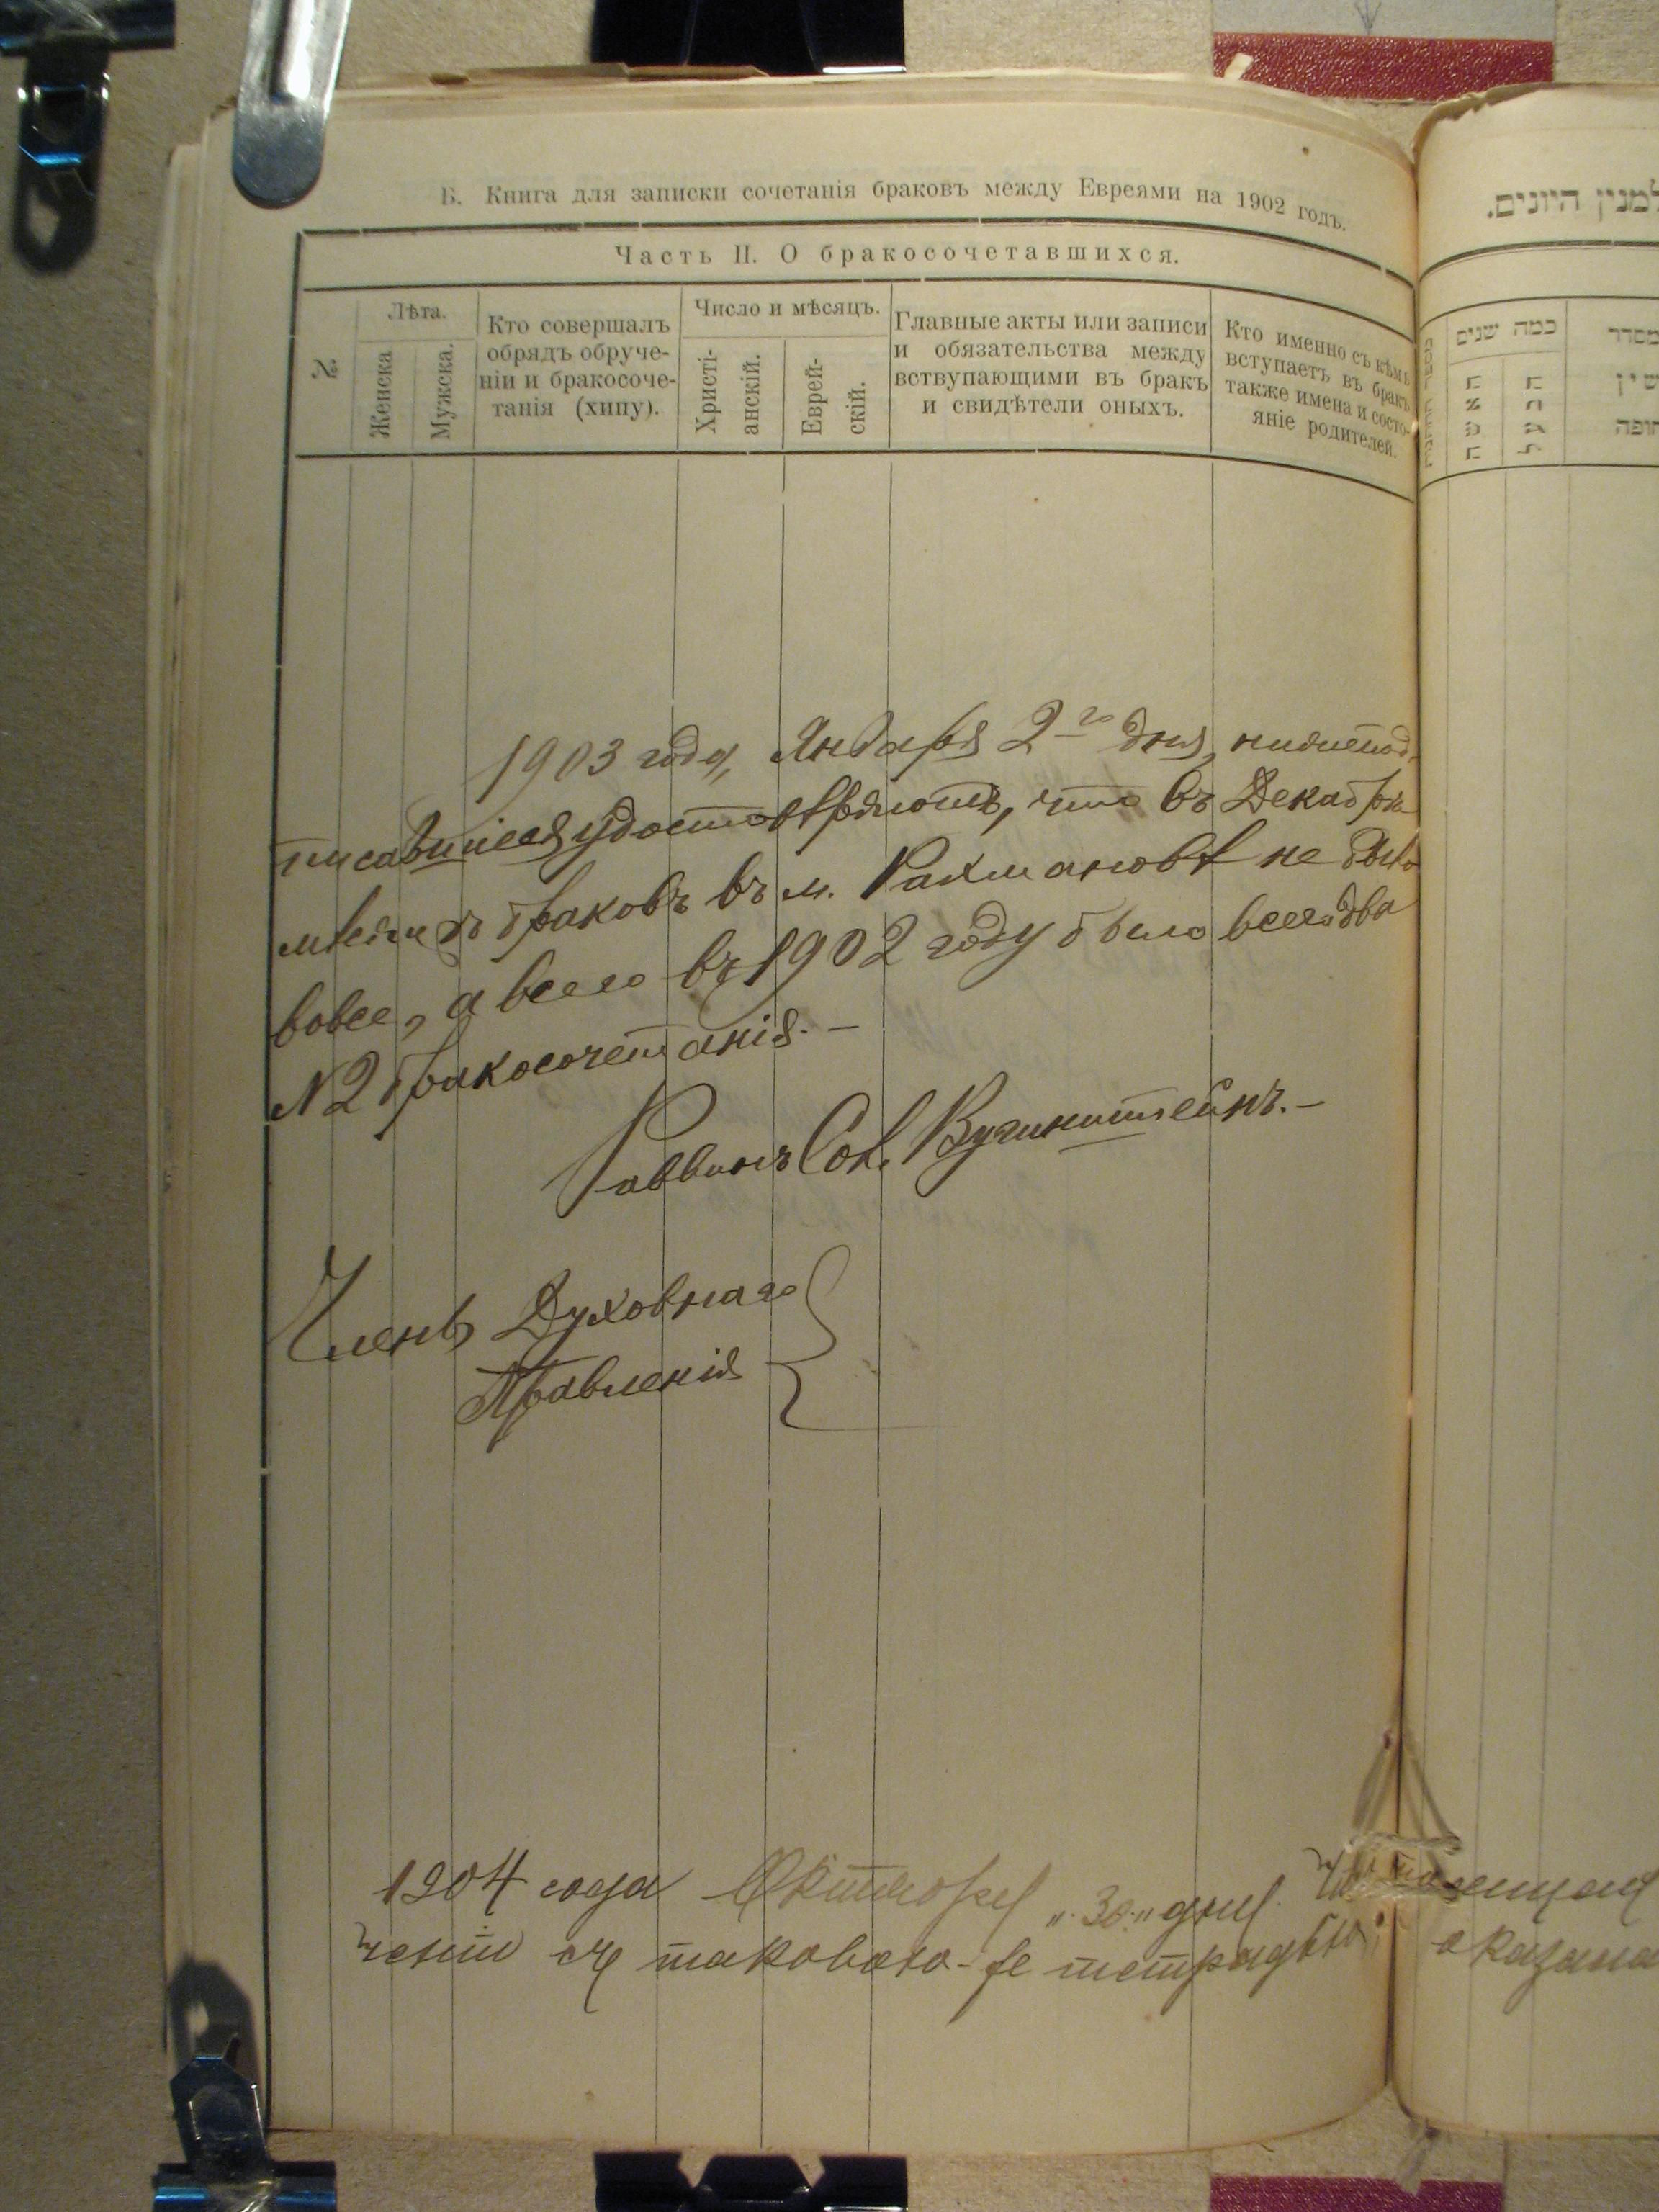 Б. Книга для записки сочетанія браковъ между Евреями на 1902 годъ.
Часть II. О бракосочетавшихся.
№
Лѣта.
Женска
Мужска.
Кто совершалъ
обрядъ обруче-
ніи и бракосоче-
танія (хипу).
Число и мѣсяцъ.
Христі-
анскій.
Еврей-
скій.
Главные акты или записи
и обязательства между
вствупающими въ бракъ
и свидѣтели оныхъ.
Кто именно съ кѣмъ
вступаетъ въ бракъ
также имена и состо-
яніе родителей.
1903 года, Января 2го дня, нижепод-
писавшіеся удостовѣряютъ, что въ Декабрѣ
мѣсяцѣ браковъ въ м. Рахмановѣ не было
вовсе, а всего въ 1902 году было всего два
№ 2 бракосочетанія. —
Раввинъ Сол. —
Членъ Духовнаго
Правленія
1904 года Октября „30“ дня.
такового-же тетрадью оказана
למנין היונים.
כמה שנים
האשה
הגבר
מסדר